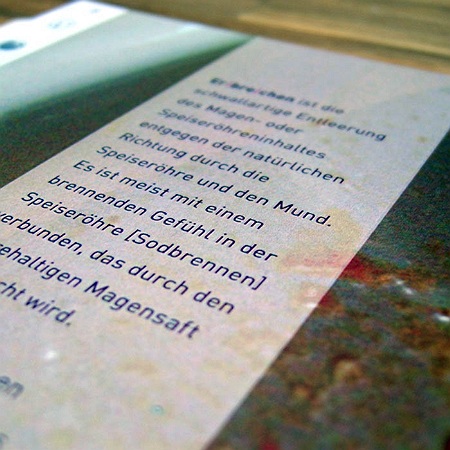 Erbrechen ist die
schwallartige Entleerung
des Magen- oder
Speiseröhreninhaltes
entgegen der natürlichen
Richtung durch die
Speiseröhre und den Mund.
Es ist meist mit einem
brennenden Gefühl in der
Speiseröhre [Sodbrennen]
verbunden, das durch den
ehaltigen Magensaft
cht wird.
en